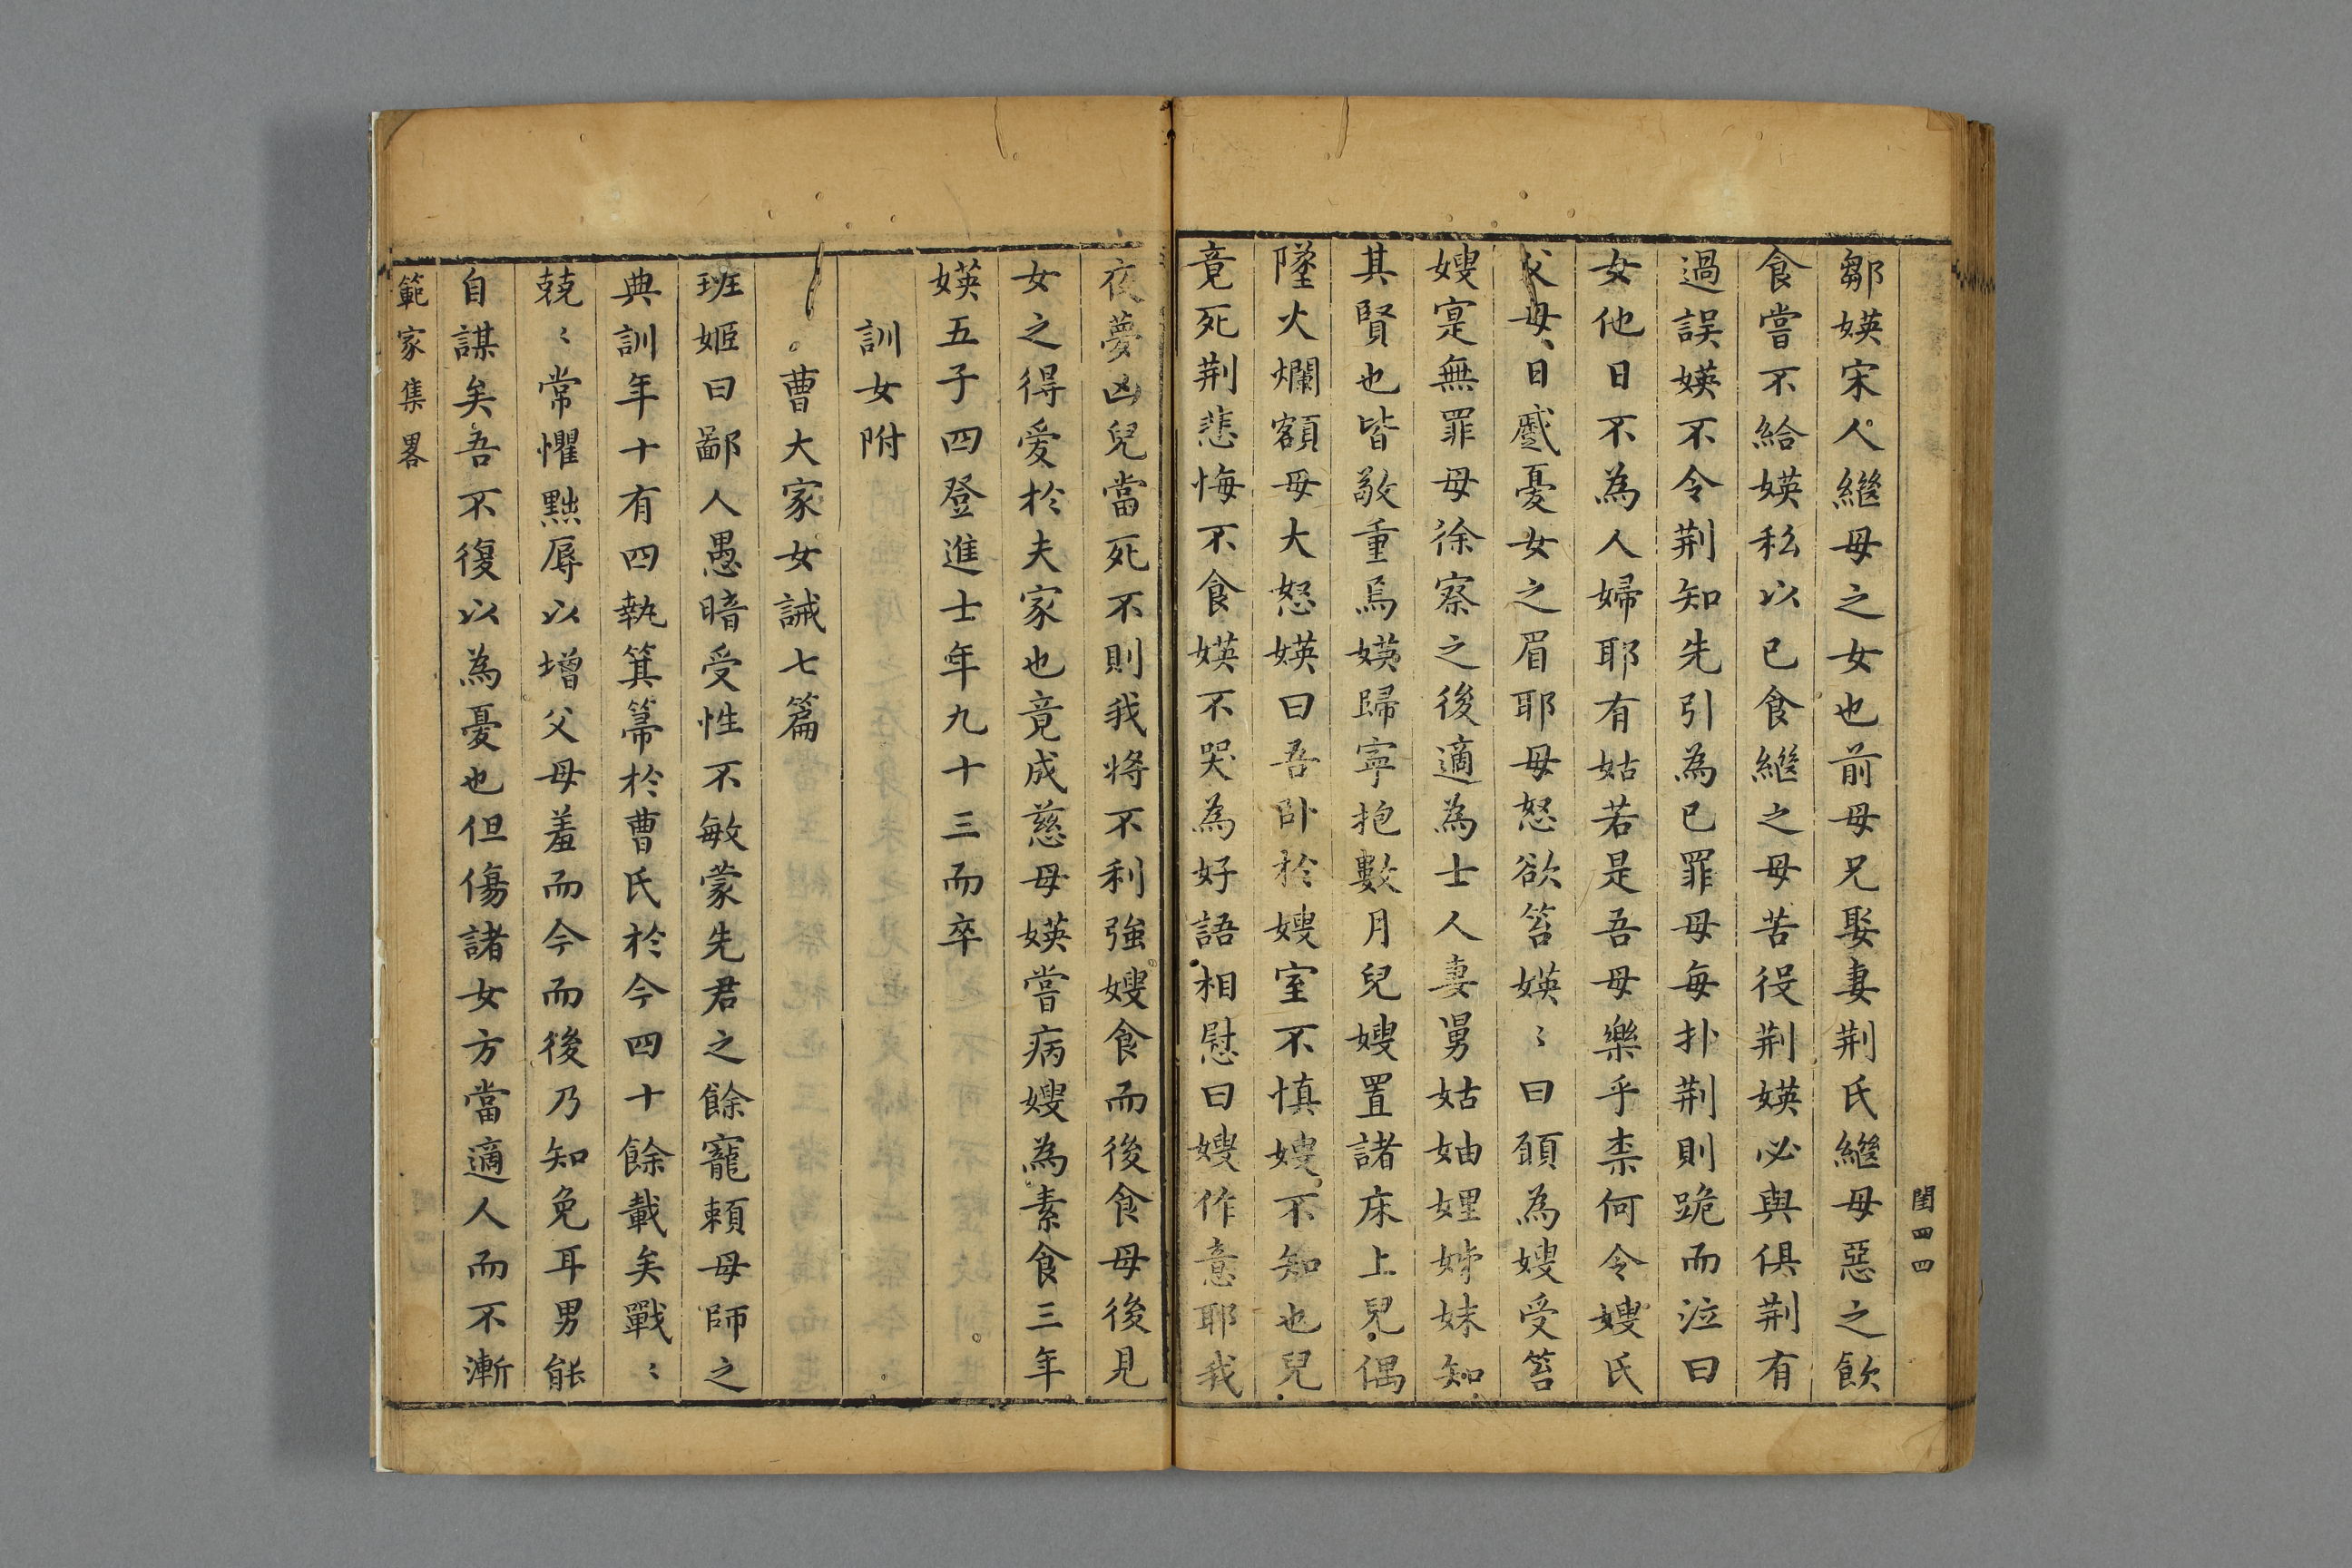 閨四四
鄒媖宋人繼母之女也前母兄娶妻荆氏繼母惡之飲
食嘗不給媖私以已食繼之母苦役荆媖必與俱荆有
過誤媖不令荆知先引為已罪母每扑荆則跪而泣曰
女他日不為人婦耶有姑若是吾母樂乎柰何令嫂氏
父母日慼憂女之眉耶母怒欲笞媖〻曰願為嫂受笞
嫂寔無罪母徐察之後適為士人妻舅姑妯娌姊妹知
其賢也皆敬重焉媖歸寧抱數月兒嫂置諸床上兒偶
墜火爛額母大怒媖曰吾卧於嫂室不慎嫂不知也兒
竟死荆悲悔不食媖不哭為好語相慰曰嫂作意耶我
夜夢凶兒當死不則我将不利強嫂食而後食母後見
女之得爱於夫家也竟成慈母媖嘗病嫂為素食三年
媖五子四登進士年九十三而卒
訓女附
曹大家女誡七篇
班姬曰鄙人愚暗受性不敏蒙先君之餘寵頼母師之
典訓年十有四執箕箒於曹氏於今四十餘載矣戰〻
兢〻常懼黜辱以增父母羞而今而後乃知免耳男能
自謀矣吾不復以為憂也但傷諸女方當適人而不漸
範家集畧